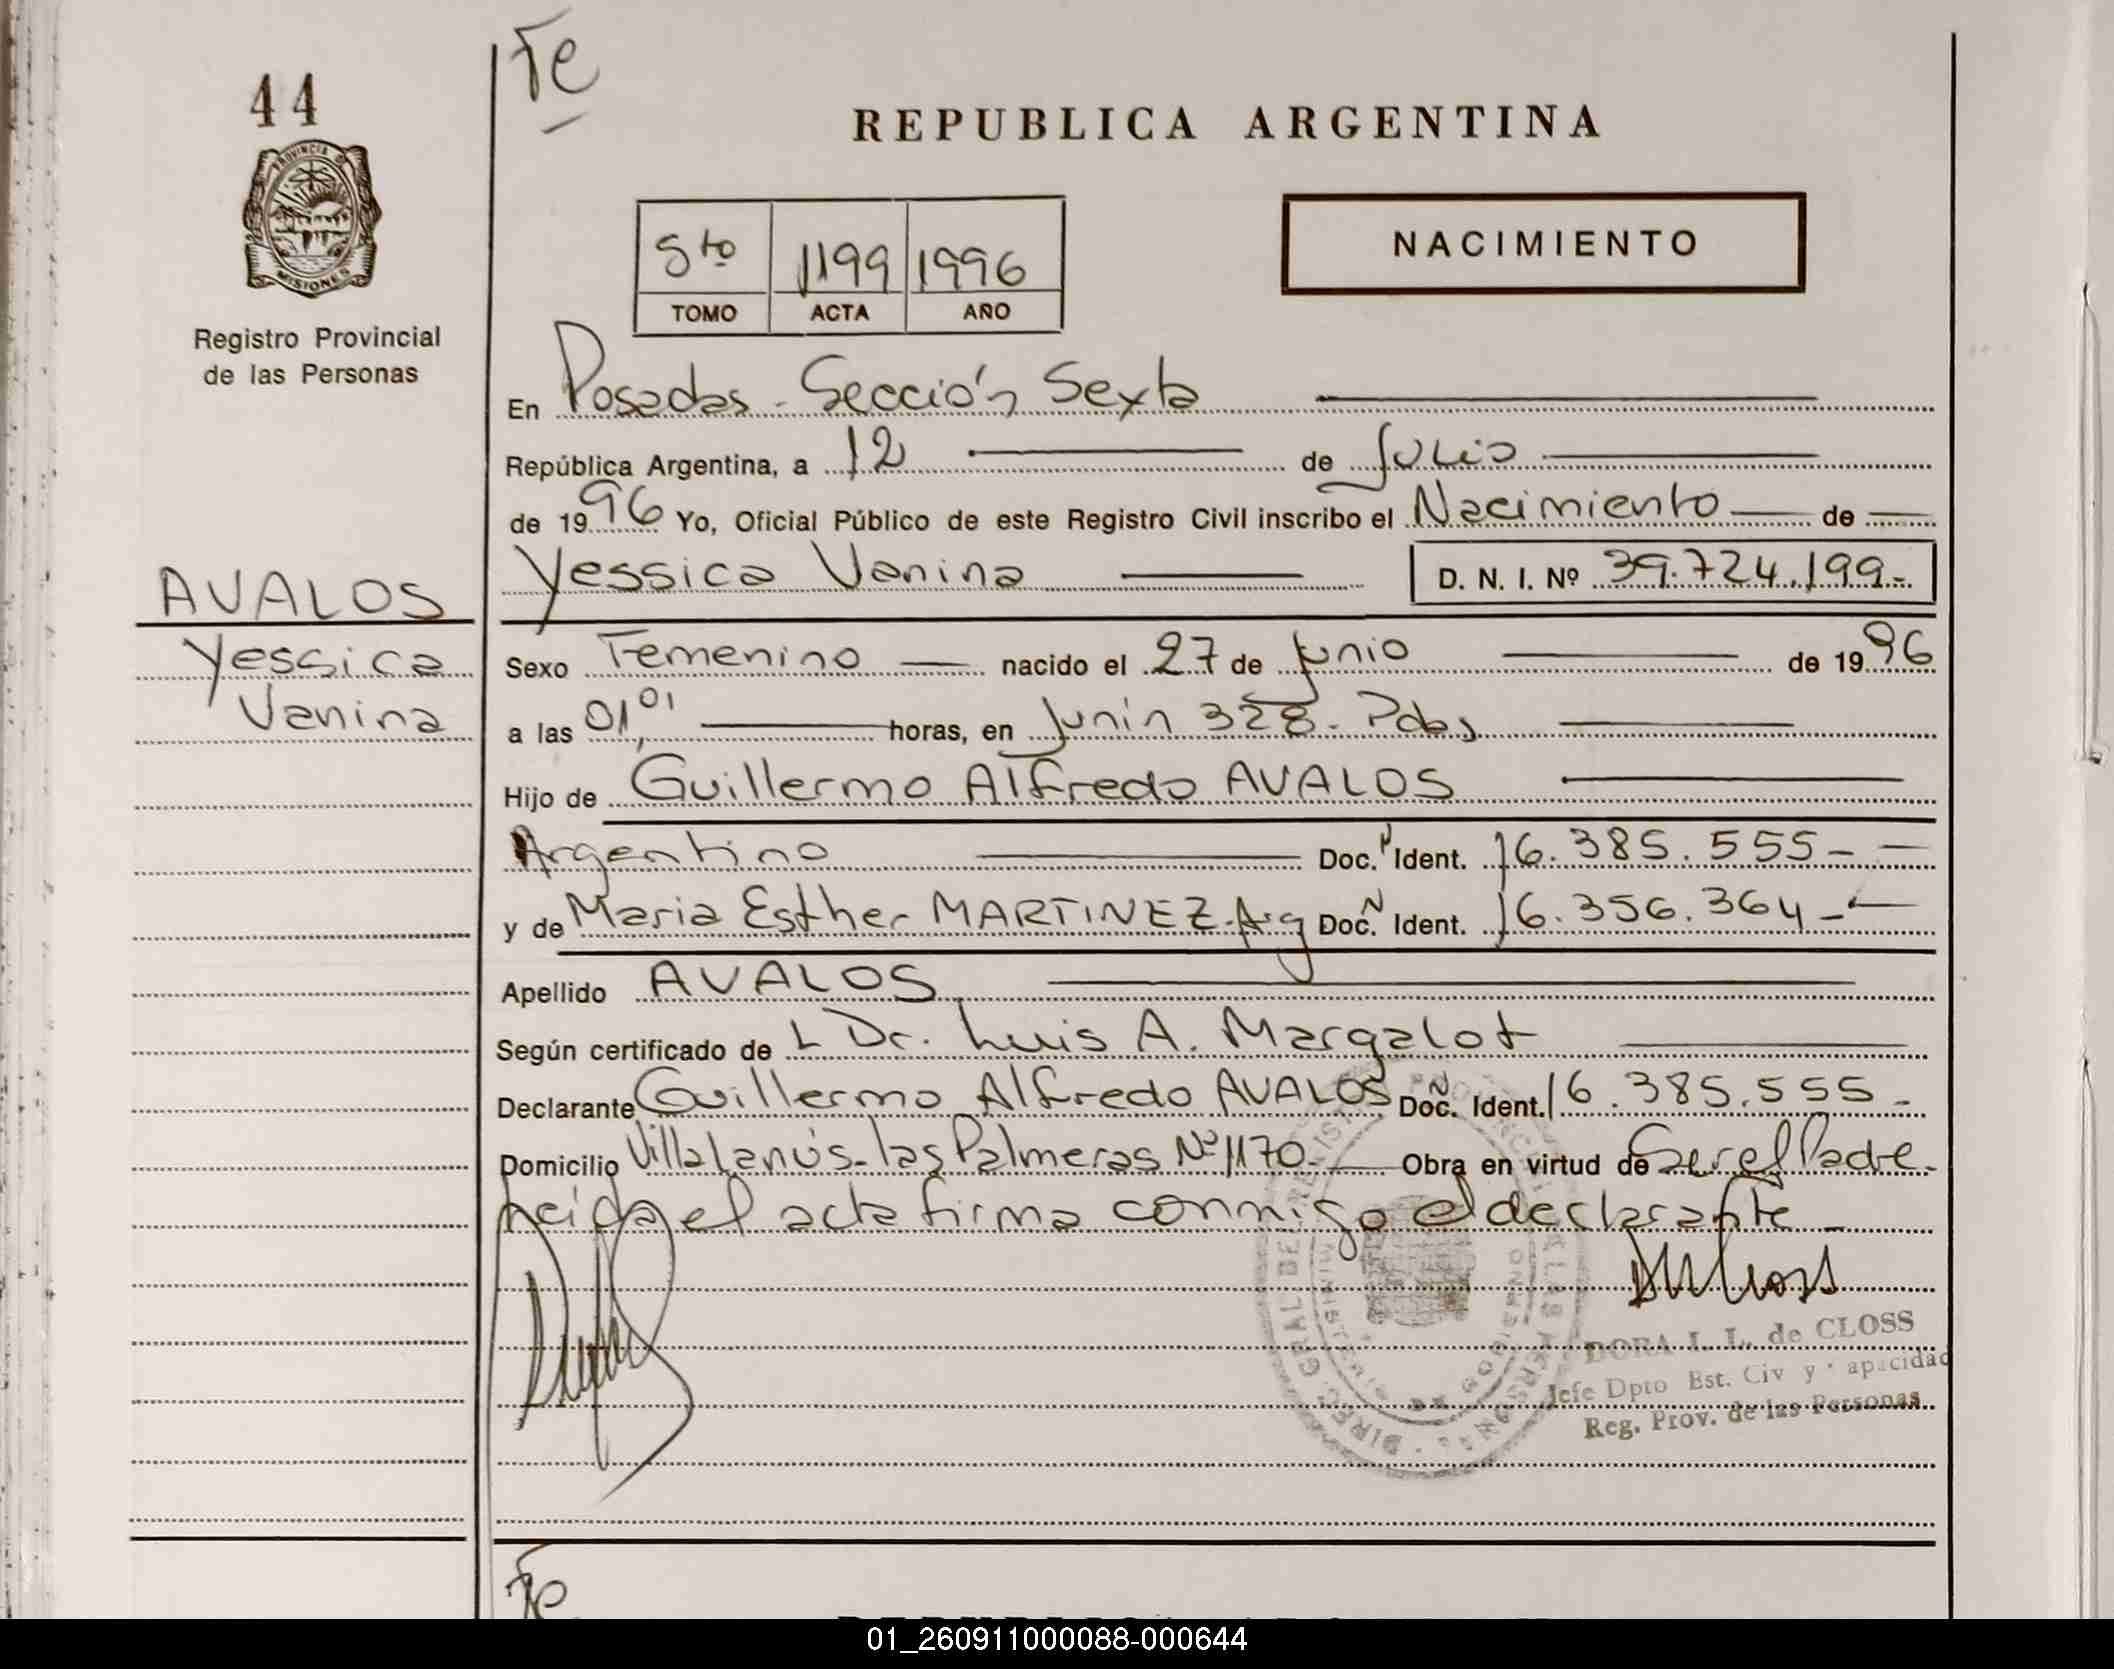 Fe
44
REPUBLICA ARGENTINA
PROVINCIA DE
MISIONES
Registro Provincial
de las Personas
5to 1199 1996
TOMO ACTA AÑO
NACIMIENTO
En Posadas - Sección Sexta
República Argentina, a 12 de Julio
de 1996 Yo, Oficial Público de este Registro Civil inscribo el Nacimiento de
Yessica Vanina D. N. I. Nº 39.724.199-
AVALOS
Yessica
Vanina
Sexo Femenino nacido el 27 de Junio de 1996
a las 01,01 horas, en Junín 328 - Pdas
Hijo de Guillermo Alfredo AVALOS
Argentino Doc. N Ident. 16.385.555-
y de Maria Esther MARTINEZ - Arg Doc. N Ident. 16.356.364-
Apellido AVALOS
Según certificado de L Dr. Luis A. Margalot
Declarante Guillermo Alfredo AVALOS Doc. N Ident. 16.385.555-
Domicilio Villa Lanús - las Palmeras Nº 1170 - Obra en virtud de Ser el Padre -
Leída el acta firma conmigo el declarante -
DORA I. L. de CLOSS
Jefe Dpto Est. Civ y apacidad
Reg. Prov. de las Personas
Fe
01_260911000088-000644